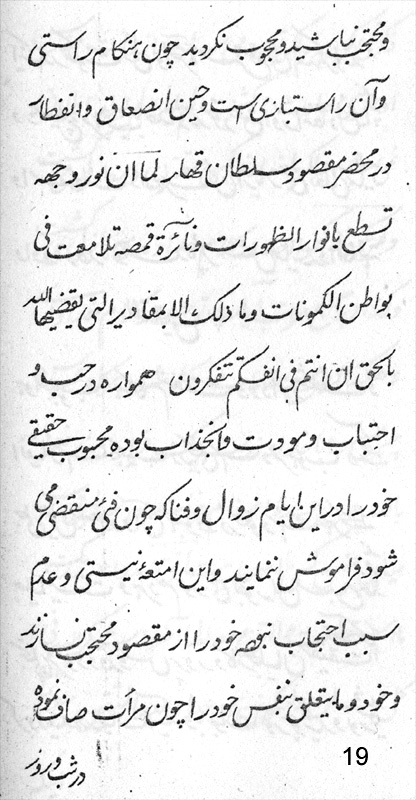 و محتجب نباشید و محجوب نکردید چون هنکام راستی
و آن راستبازی است و حین انصعاق و انفطار
در محضر مقصود سلطان قهار لما ان نور وجهه
تسطع بانوار الظهورات و نائرة قمصه تلامعت فی
بواطن الکمونات و ما ذلک الا بمقادیر التی یقضیها الله
بالحق ان انتم فی انفسکم تتفکرون همواره در حب و
اجتباب و مودت و انجذاب بوده محبوب حقیقی
خود را در این ایام زوال و فنا که چون فئ منقضی می
شود فراموش ننمایند و این امتعهٔ نیستی و عدم
سبب احتجاب نبوده خود را از مقصود محتجب نسازند
و خود و ما یتعلق بنفس خود را چون مرآت صاف نموده
در شب و روز
19